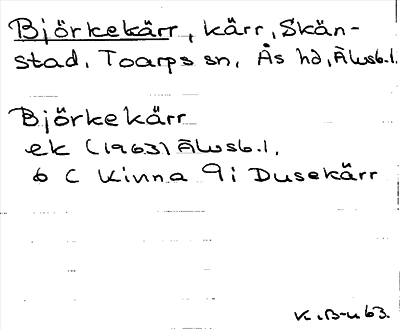 Björkekärr, kärr, Skän-
stad, Toarps sn, Ås hd, Älvsb.l.
Björkekärr
ek (1963) Älvsb.l.
6 C Kinna 9i Dusekärr
K.B-u 63.